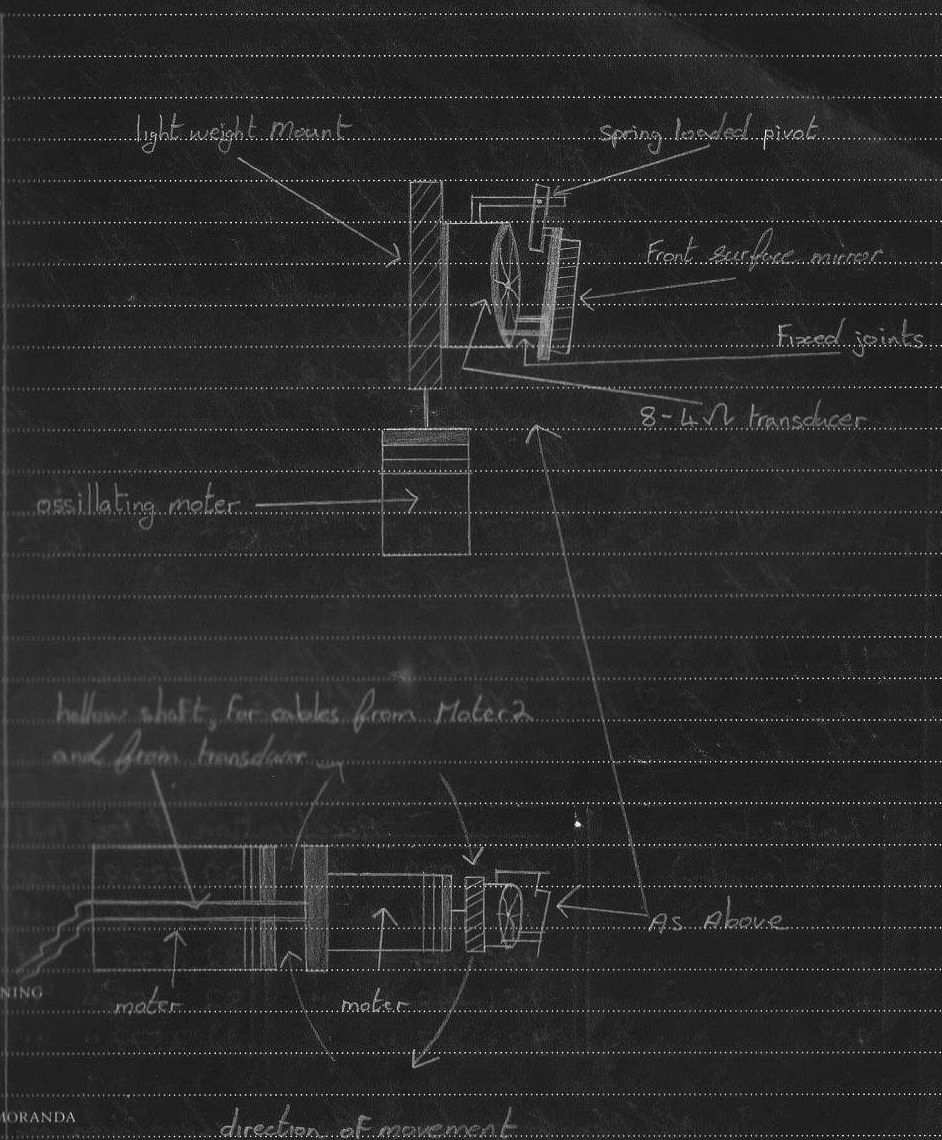 light weight Mount
spring loaded pivot
Front surface mirror
Fixed joints
8-4Ω transducer
ossillating moter
hollow shaft, for cables from Moter 2
and from transducer
As Above
NING
moter
moter
MORANDA
direction of movement